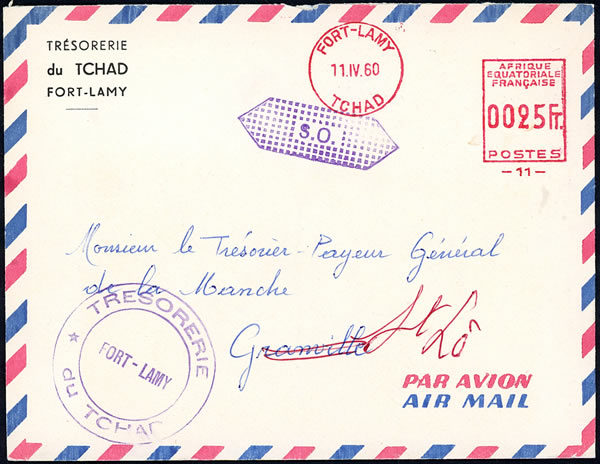 TRÉSORERIE
du TCHAD
FORT-LAMY
FORT-LAMY
11.IV.60
TCHAD
AFRIQUE
EQUATORIALE
FRANÇAISE
0025Fr.
POSTES
-11-
S.O.
Monsieur le Trésorier-Payeur Général
de la Manche
Granville St Lô
TRESORERIE
FORT-LAMY
du TCHAD
PAR AVION
AIR MAIL